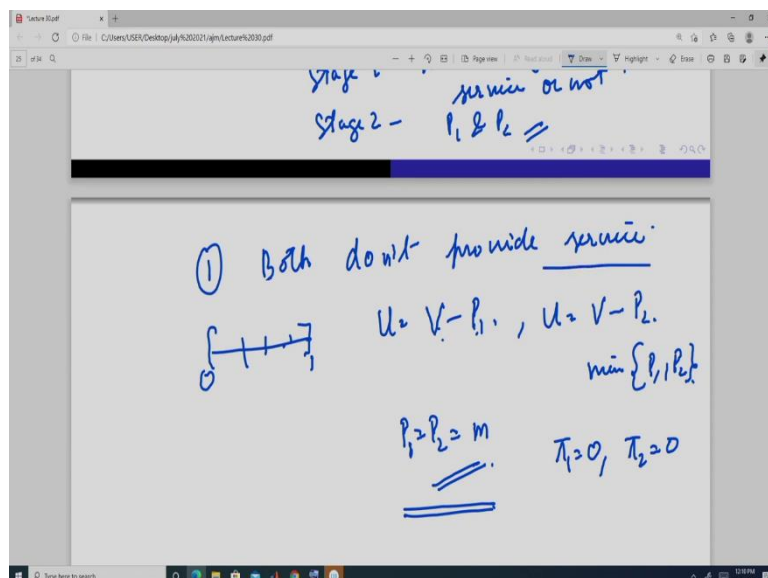 *Lecture 30.pdf
File | C:/Users/USER/Desktop/july%202021/ajm/Lecture%2030.pdf
25 of 34 Page view Read aloud Draw Highlight Erase
Stage
service or not
Stage 2 - P₁ & P₂
① Both don't provide service.
U = V - P₁. , U = V - P₂.
0 1
min {P₁, P₂}
P₁ = P₂ = m π₁ = 0, π₂ = 0
Type here to search 12:10 PM